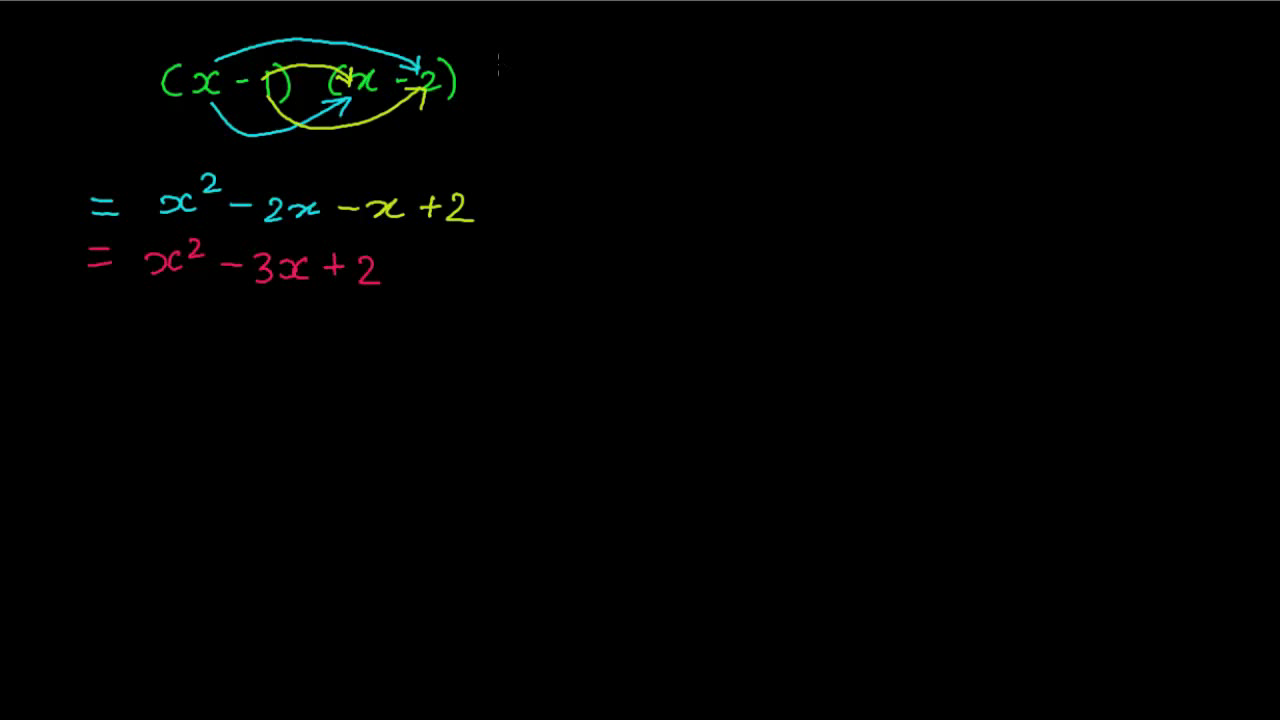 (x - 1) (x - 2)
= x² - 2x - x + 2
= x² - 3x + 2